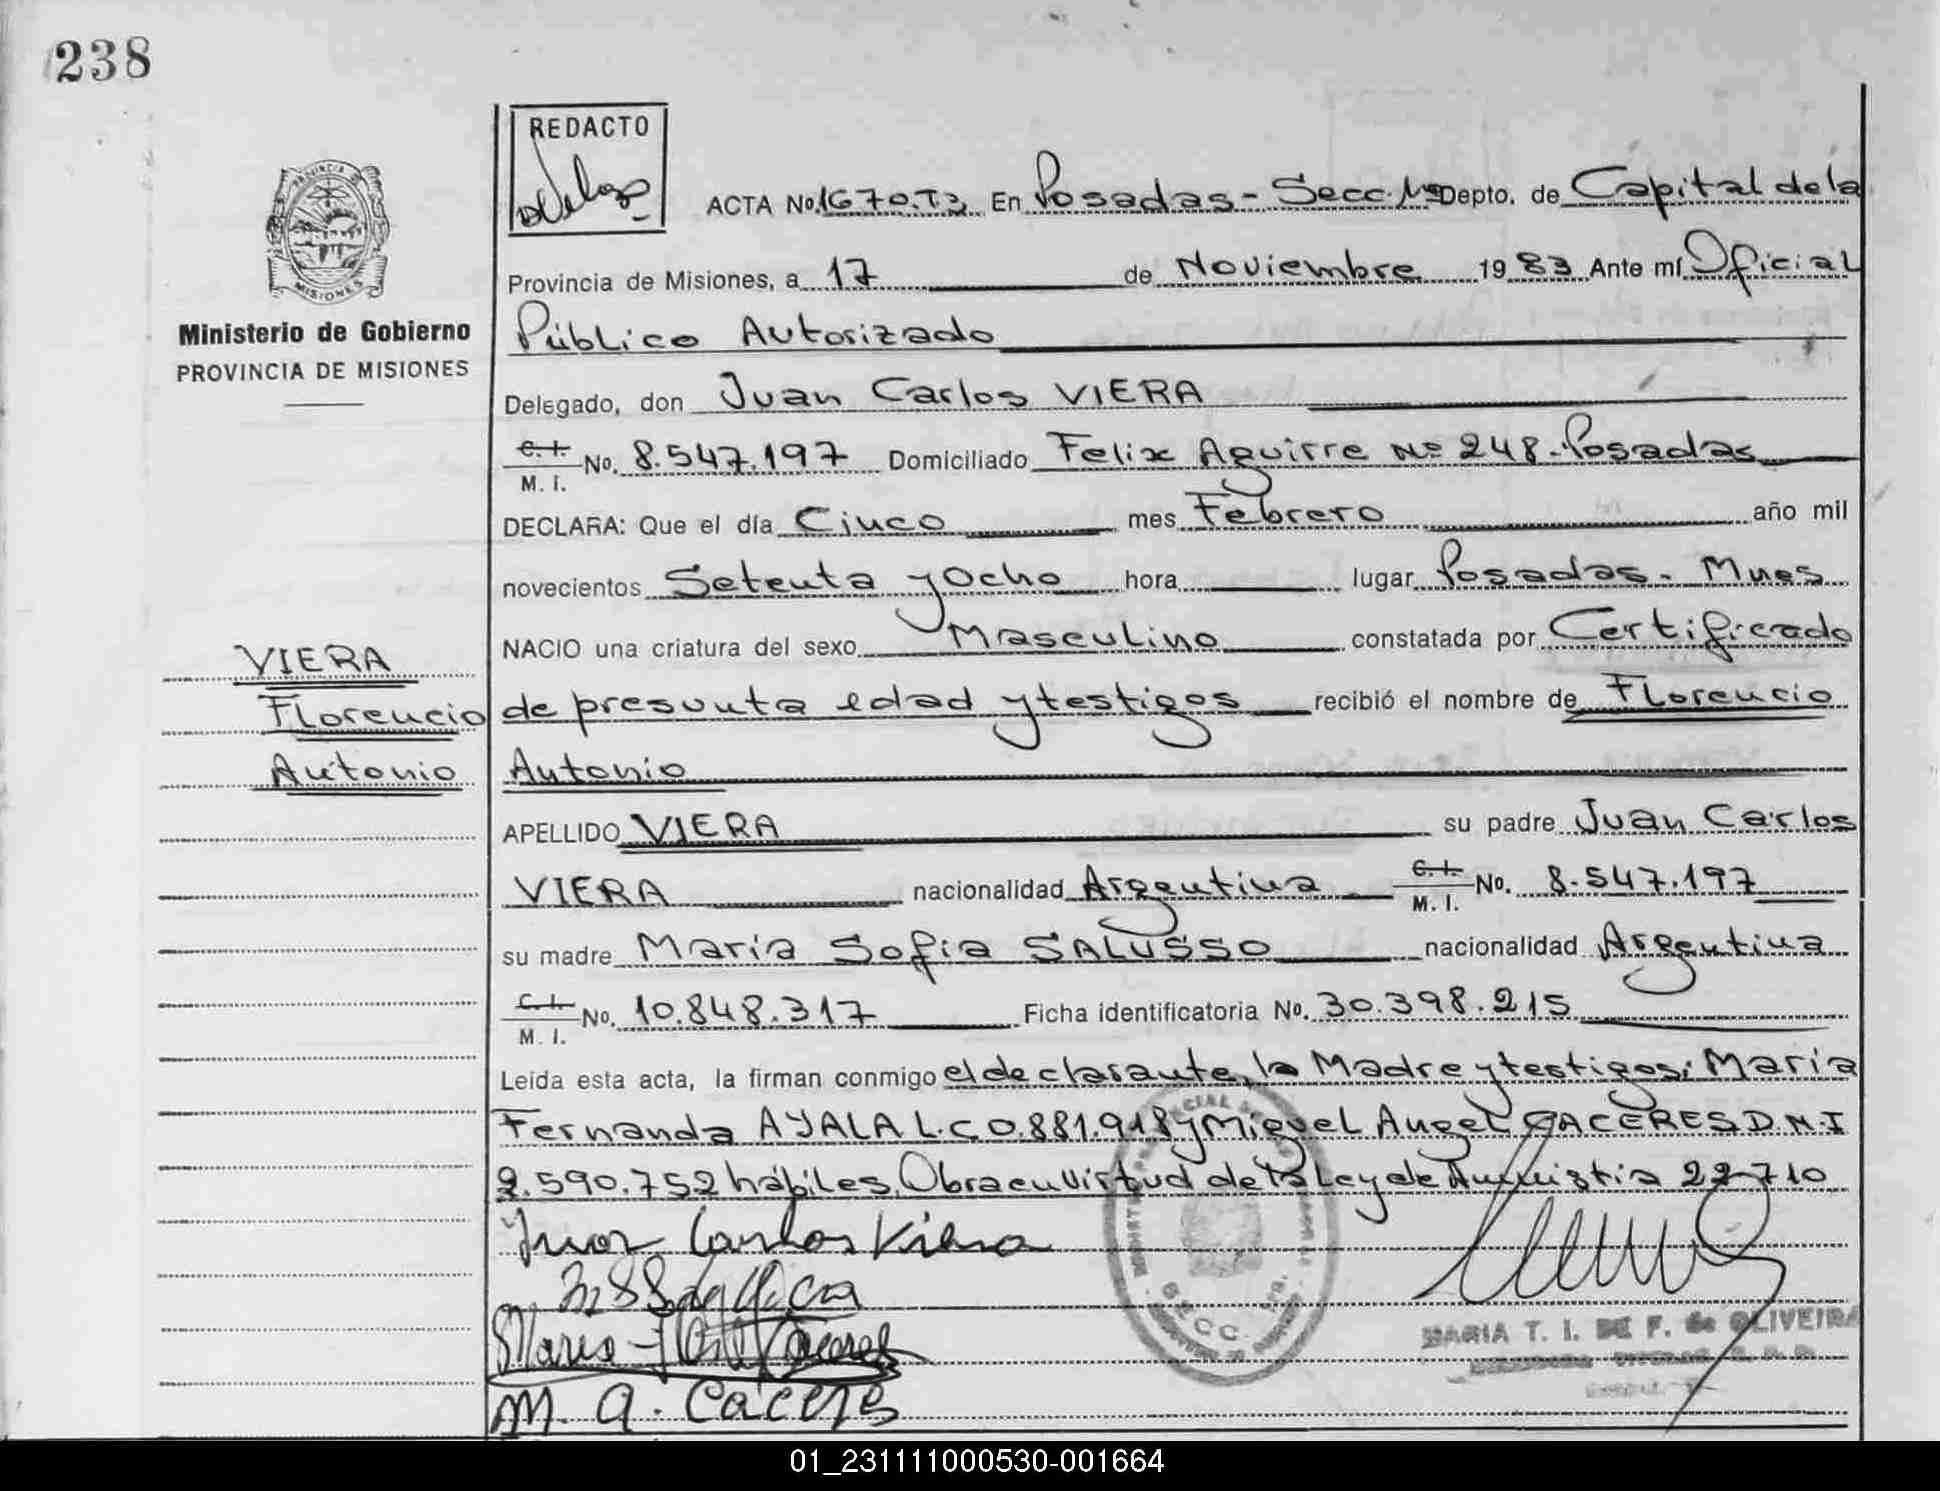 238
REDACTO
ACTA No. 1670.T3. En Posadas - Secc. 1ª Depto. de Capital de la
Provincia de Misiones, a 17 de Noviembre 1983 Ante mí Oficial
Ministerio de Gobierno
PROVINCIA DE MISIONES
MISIONES
Público Autorizado
Delegado, don Juan Carlos VIERA
C. I. M. I. No. 8.547.197 Domiciliado Felix Aguirre Nº 248. Posadas
DECLARA: Que el día Cinco mes Febrero año mil
novecientos Setenta y Ocho hora lugar Posadas - Mnes
NACIO una criatura del sexo Masculino constatada por Certificado
de presunta edad y testigos recibió el nombre de Florencio
Antonio
VIERA
Florencio
Antonio
APELLIDO VIERA su padre Juan Carlos
VIERA nacionalidad Argentina C. I. M. I. No. 8.547.197
su madre María Sofía SALUSSO nacionalidad Argentina
C. I. M. I. No. 10.848.317 Ficha identificatoria No. 30.398.215
Leída esta acta, la firman conmigo el declarante, la Madre y testigos: María
Fernanda AYALA L.C 0.881.918 y Miguel Angel CACERES D.N.I
2.590.752 hábiles. Obra en virtud de la Ley de Amnistia 22710
Juan Carlos Viera
M. A. Caceres
SECC.
MARIA T. I. DE F. de OLIVEIRA
01_231111000530-001664